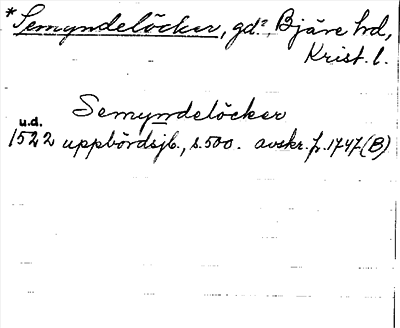 *Semyndelöcker, gd?, Bjäre hd,
Krist. l.
Semyndelöcker
u.d.
1522 uppbördsjb., s. 500. avskr. fr. 1747 (B)